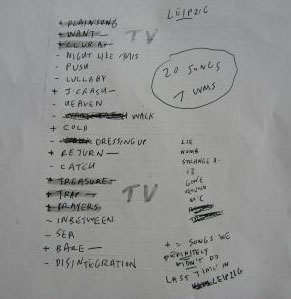 LEIPZIG
+ PLAINSONG
+ WANT
+ CLUB A
TV
- NIGHT LIKE THIS
- PUSH
- LULLABY
+ J. CRASH
- HEAVEN
- WALK
+ COLD
- DRESSING UP
+ RETURN
- CATCH
+ TREASURE
+ TRAP
+ PRAYERS
TV
- INBETWEEN
- SEA
+ BARE
- DISINTEGRATION
20 SONGS
LIE
NUMB
STRANGE A.
13
GONE
ROUND
+ = SONGS WE
DEFINITELY
DIDN'T DO
LAST TIME IN
LEIPZIG